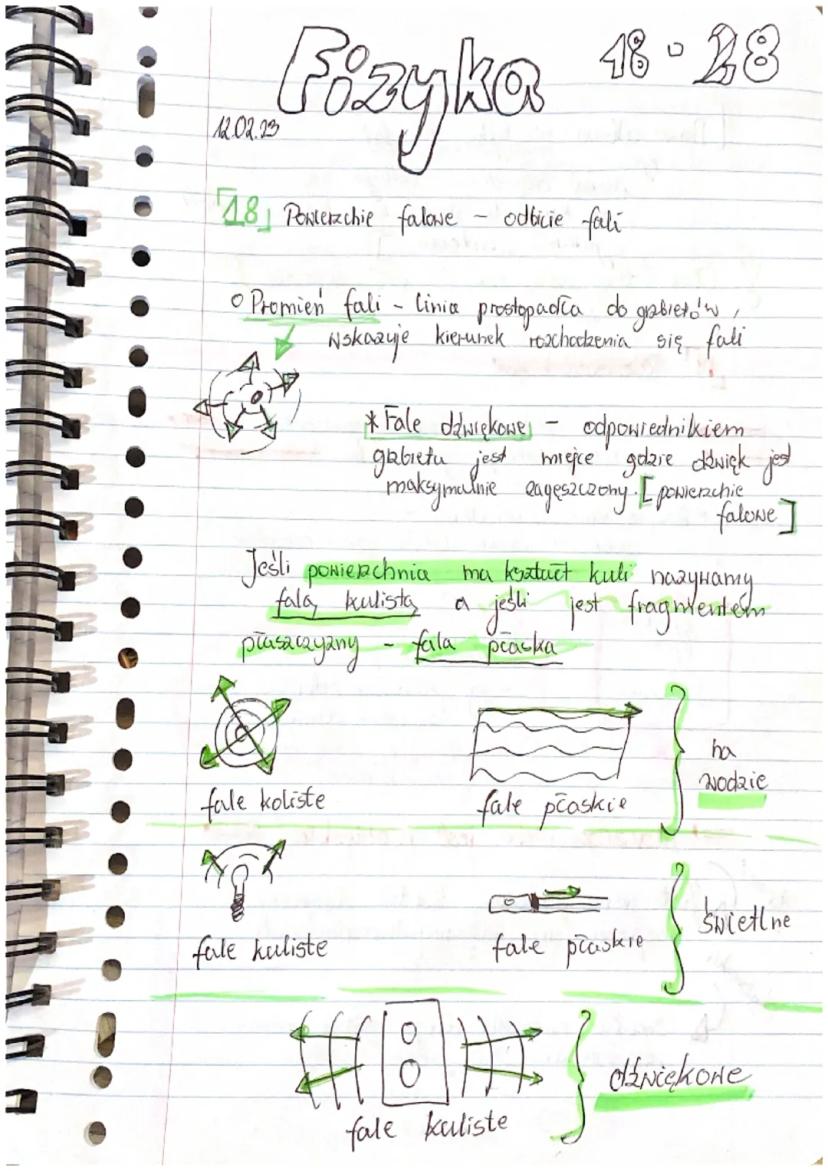 Fizyka 18 - 28
12.02.23
「18」 Powierzchie falowe - odbicie fali
○ Promień fali - linia prostopadła do grzbietów,
wskazuje kierunek rozchodzenia się fali
* Fale dźwiękowe - odpowiednikiem
grzbietu jest miejce gdzie dźwięk jest
maksymalnie zagęszczony. [powierzchie
falowe]
Jeśli powierzchnia ma kształt kuli nazywamy
falą kulistą, a jeśli jest fragmentem
płaszczyzny - fala płaska
fale koliste fale płaskie
na
wodzie
fale kuliste fale płaskie
świetlne
dźwiękowe
fale kuliste